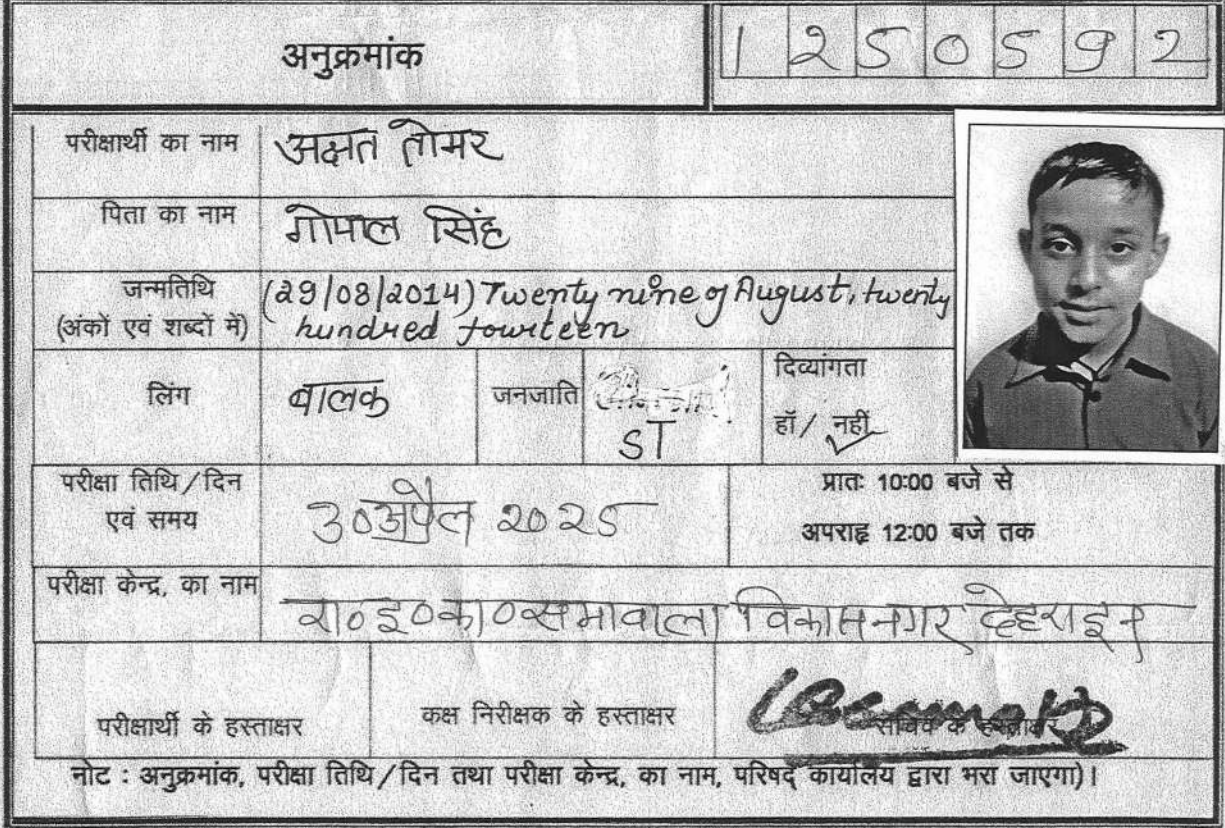 अनुक्रमांक 1250592
परीक्षार्थी का नाम अक्षत तोमर
पिता का नाम गोपाल सिंह
जन्मतिथि (29/08/2014) Twenty nine of August, twenty
(अंकों एवं शब्दों में) hundred fourteen
लिंग बालक जनजाति ST दिव्यांगता
हॉ / नहीं
परीक्षा तिथि/दिन 30 अप्रैल 2025 प्रातः 10:00 बजे से
एवं समय अपराह्न 12:00 बजे तक
परीक्षा केन्द्र, का नाम रा०इ०का०सभावाला विकासनगर देहरादून
परीक्षार्थी के हस्ताक्षर कक्ष निरीक्षक के हस्ताक्षर सचिव के हस्ताक्षर
नोट : अनुक्रमांक, परीक्षा तिथि/दिन तथा परीक्षा केन्द्र, का नाम, परिषद् कार्यालय द्वारा भरा जाएगा)।